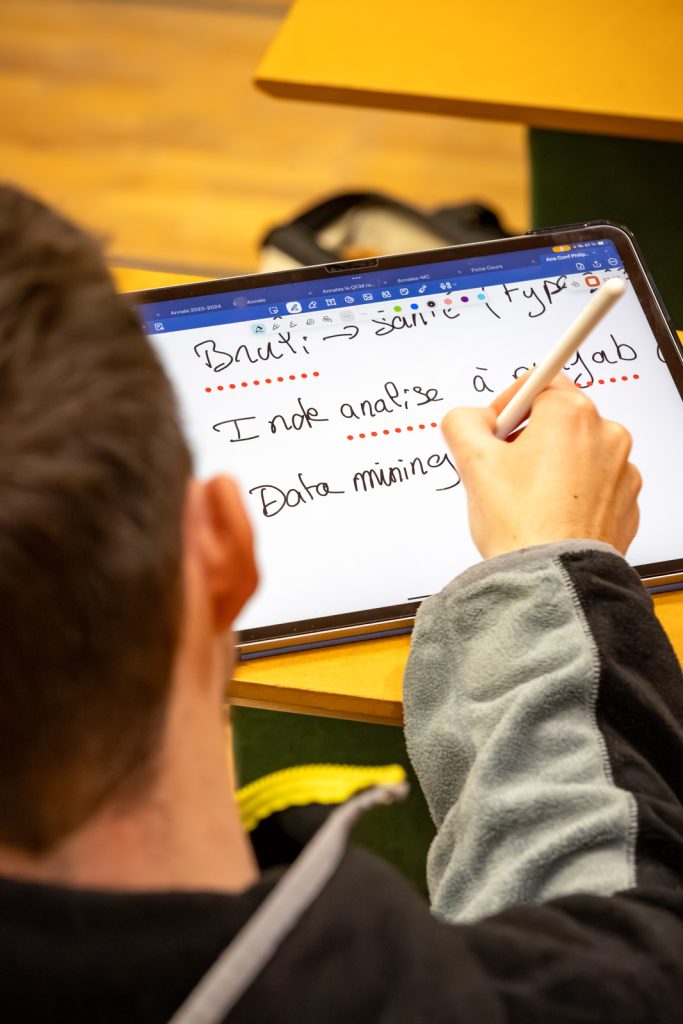 Annale 2023-2024 Annale Annales le QCM Annales-MC Fiche Cours Ana Conf Philip...
→ Santé (type
Inde analise à
Data mining